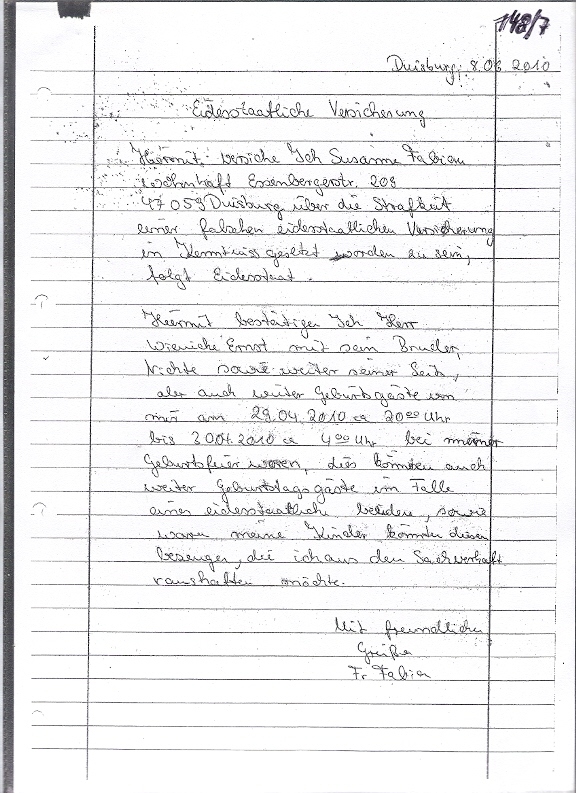 148/7
Duisburg, 8.06 2010
Eidesstaatliche Versicherung
Hiermit, versiche Ich Susanne Fabian
wohnhaft Essenbergerstr. 203
47059 Duisburg über die Strafbeit
einer falschen eidesstaatlichen Versicherung
in Kenntniss gesetzt worden zu sein,
folgt Eidesstaat.
Hiermit bestätigen Ich Herr
Ernst mit sein Bruder,
Nichte sowie weiter seiner Seits,
aber auch weiter Geburtsgäste von
mir am 29.04.2010 ca 20⁰⁰ Uhr
bis 30.04.2010 ca 4⁰⁰ Uhr bei meiner
Geburtsfeier waren, dies könnten auch
weiter Geburtstagsgäste im Falle
eines eidesstaatliche beeiden, sowie
waren meine Kinder könnten diesen
bezeugen, die ich aus den Sachverhalt
raushalten möchte.
Mit freundlichen
Grüße
Fr Fabian